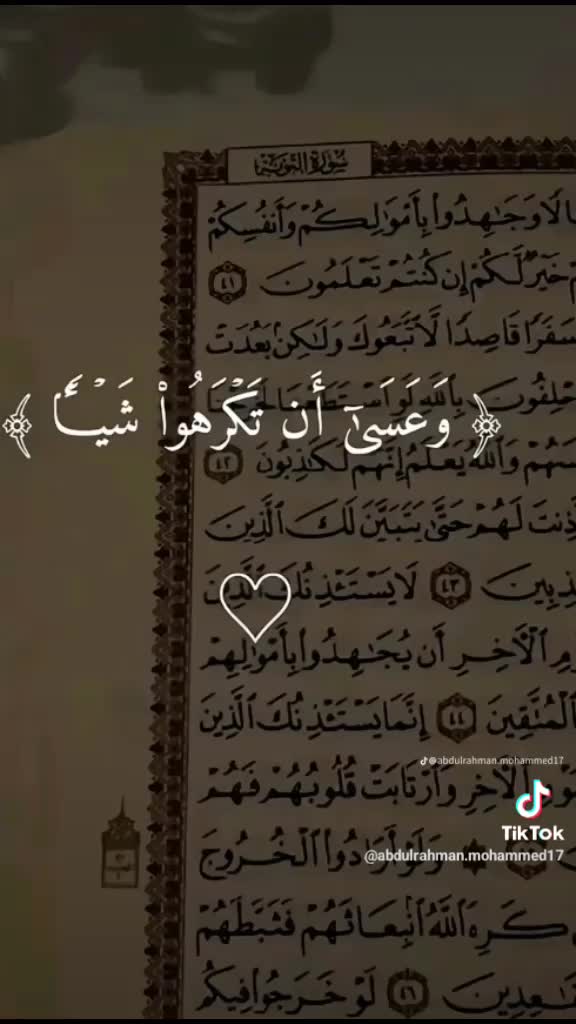 سُورَةُ التَّوۡبَةِ
وَجَٰهِدُواْ بِأَمۡوَٰلِكُمۡ وَأَنفُسِكُمۡ
خَيۡرٞ لَّكُمۡ إِن كُنتُمۡ تَعۡلَمُونَ ٤١
سَفَرٗا قَاصِدٗا لَّٱتَّبَعُوكَ وَلَٰكِنۢ بَعُدَتۡ
بِٱللَّهِ لَوِ
﴿ وَعَسَىٰٓ أَن تَكۡرَهُواْ شَيۡـٔٗا ﴾
وَٱللَّهُ يَعۡلَمُ إِنَّهُمۡ لَكَٰذِبُونَ ٤٢
لَهُمۡ حَتَّىٰ يَتَبَيَّنَ لَكَ ٱلَّذِينَ
٤٣ لَا يَسۡتَـٔۡذِنُكَ ٱلَّذِينَ
ٱلۡأٓخِرِ أَن يُجَٰهِدُواْ بِأَمۡوَٰلِهِمۡ
٤٤ إِنَّمَا يَسۡتَـٔۡذِنُكَ ٱلَّذِينَ
@abdulrahman.mohammed17
وَٱلۡيَوۡمِ ٱلۡأٓخِرِ وَٱرۡتَابَتۡ قُلُوبُهُمۡ فَهُمۡ
TikTok
@abdulrahman.mohammed17
وَلَوۡ أَرَادُواْ ٱلۡخُرُوجَ
كَرِهَ ٱللَّهُ ٱنۢبِعَاثَهُمۡ فَثَبَّطَهُمۡ
٤٦ لَوۡ خَرَجُواْ فِيكُم